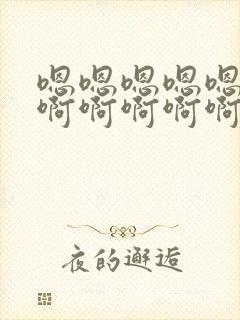 嗯嗯嗯嗯嗯
啊啊啊啊啊
夜的邂逅